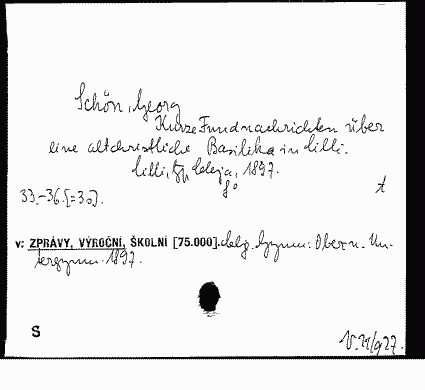 Schön, Georg
Kurze Fundnachrichten über
eine altchristliche Basilika in Cilli.
Cilli, typ. Celeja, 1897.
8°
33.-36. [=30].
v: ZPRÁVY, VÝROČNÍ, ŠKOLNÍ [75.000]. Gymn. Ober u. Un-
tergymn. 1897.
S